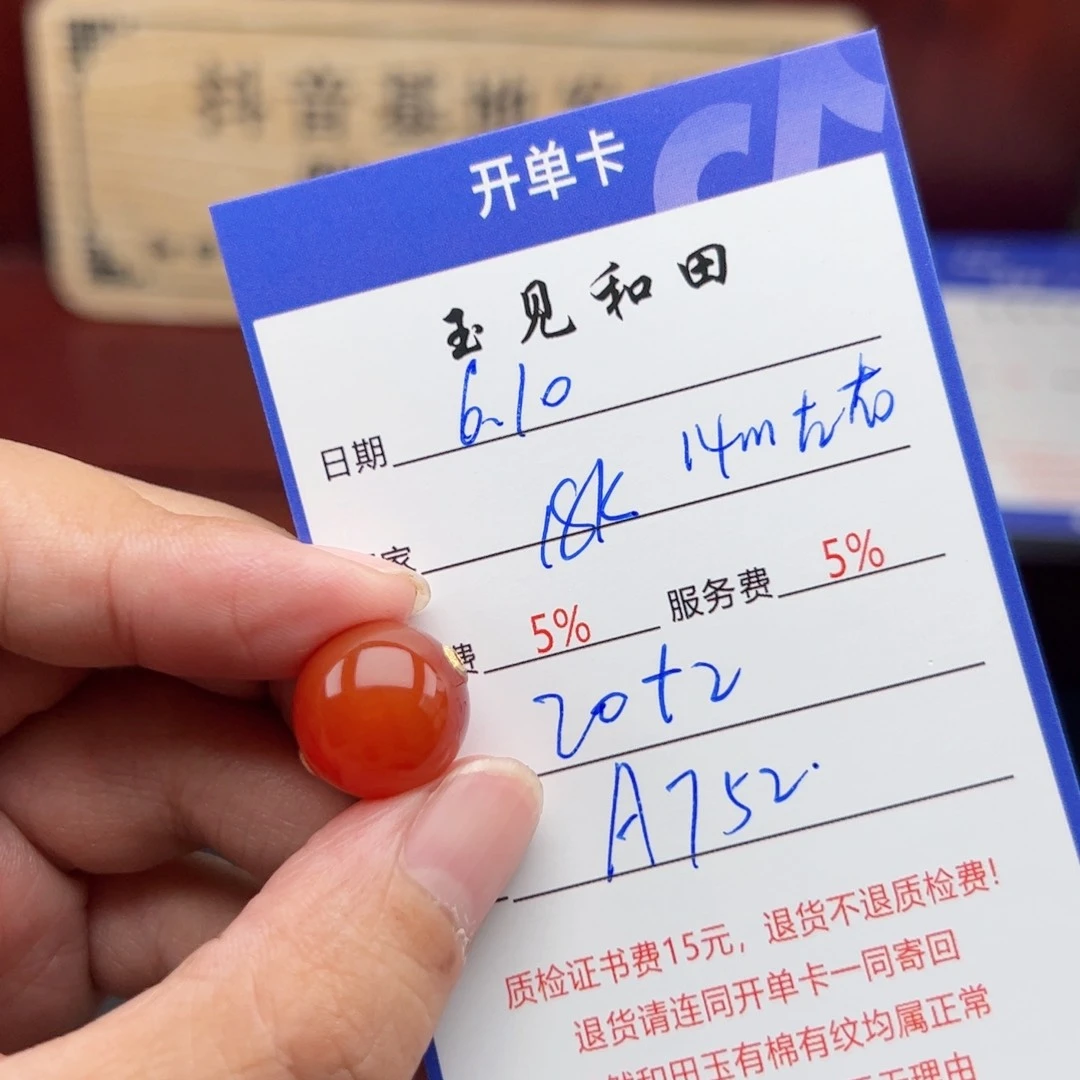 抖音基地
开单卡
玉见和田
日期 6.10
家 18K 14m左右
费 5% 服务费 5%
20+2
A752.
质检证书费15元，退货不退质检费!
退货请连同开单卡一同寄回
然和田玉有棉有纹均属正常
理由